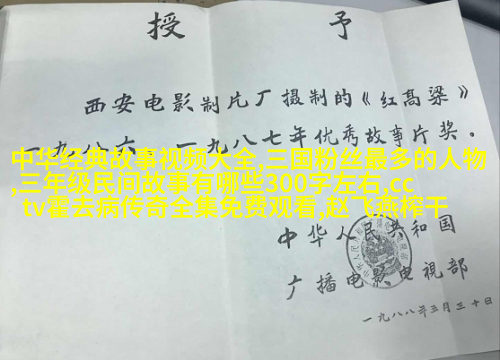 授予
西安电影制片厂摄制的《红高粱》
一九八六—一九八七年优秀故事片奖。
中华经典故事视频大全,三国粉丝最多的人物
,三年级民间故事有哪些300字左右,cc
tv霍去病传奇全集免费观看,赵飞燕榨干
中华人民共和国
广播电影电视部
一九八八年三月三十日